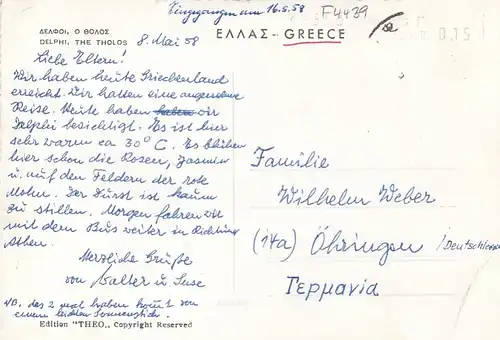 Eingegangen am 16.5.58
F4439
0.15
ΔΕΛΦΟΙ, Ο ΘΟΛΟΣ
DELPHI, THE THOLOS
ΕΛΛΑΣ - GREECE
8. Mai 58
Liebe Eltern!
Wir haben heute Griechenland
erreicht. Wir hatten eine angenehme
Reise. Heute haben haben wir
Delphi besichtigt. Es ist hier
sehr warm ca 30° C. Es blühen
hier schon die Rosen, Jasmin
u. auf den Feldern der rote
Mohn. Der Durst ist kaum
zu stillen. Morgen fahren wir
mit dem Bus weiter in Richtung
Athen.
Herzliche Grüße
von Walter u. Suse
NB. das 2 mal haben kommt von
einem leichten Sonnenstich.
Edition "THEO", Copyright Reserved
Familie
Wilhelm Weber
(14a) Öhringen /Deutschland
Γερμανία